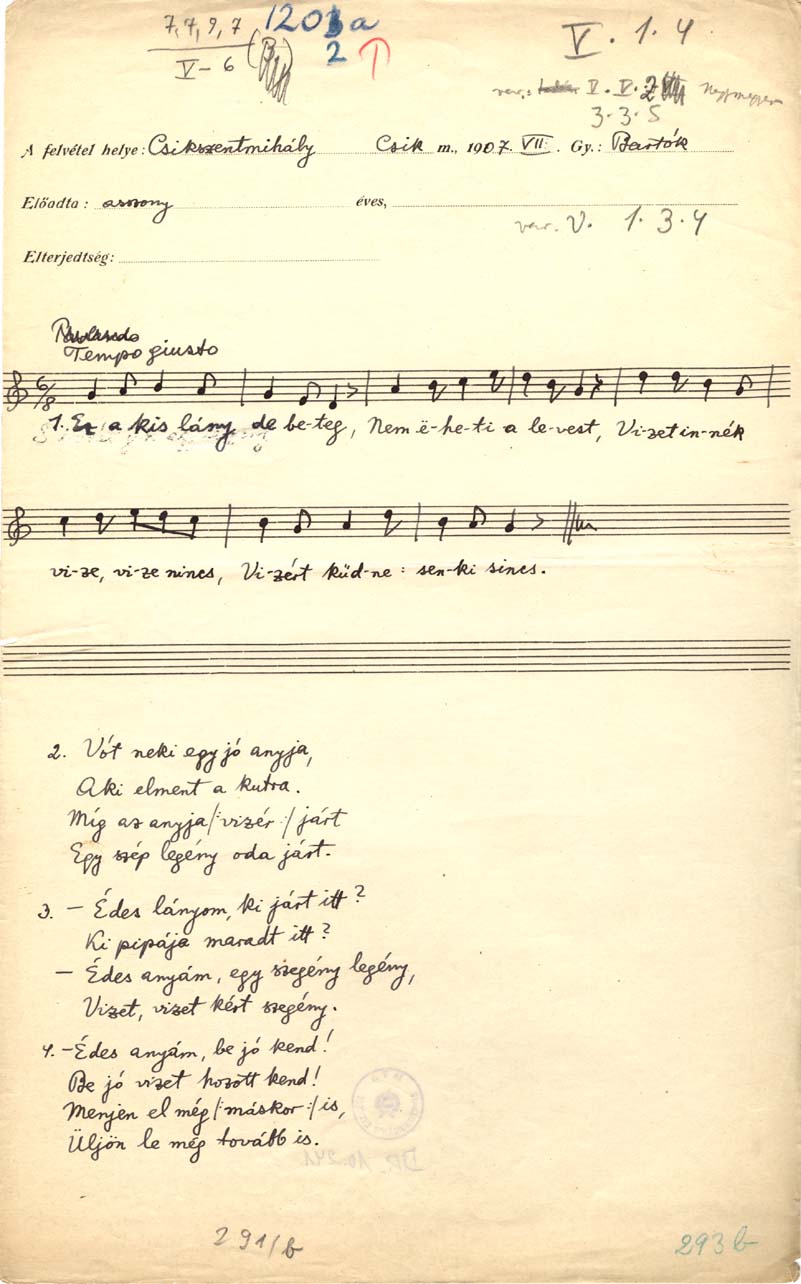 7, 7, 9, 7
V – 6
1201a
2
V. 1. 4
var.: V. V. 2
3. 3. 5
A felvétel helye: Csíkszentmihály Csík m., 1907. VII. Gy.: Bartók
Előadta: asszony éves,
var. V. 1. 3. 4
Elterjedtség:
Tempo giusto
6/8
1. Ez a kis lány de be-teg, Nem ë-he-ti a le-vest, Vi-zet in-nék
vi-ze, vi-ze nincs, Vi-zért küd-ne: sen-ki sincs.
2. Vót neki egy jó anyja,
Aki elment a kutra.
Míg az anyja /: vizér :/ járt
Egy szép legény oda járt.
3. – Édes lányom, ki járt itt?
Ki pipája maradt itt?
– Édes anyám, egy szegény legény,
Vizet, vizet kért szegény.
4. – Édes anyám, be jó kend!
Be jó vizet hozott kend!
Menjen el még /: máskor :/ is,
Üljön le még tovább is.
291/b
293b